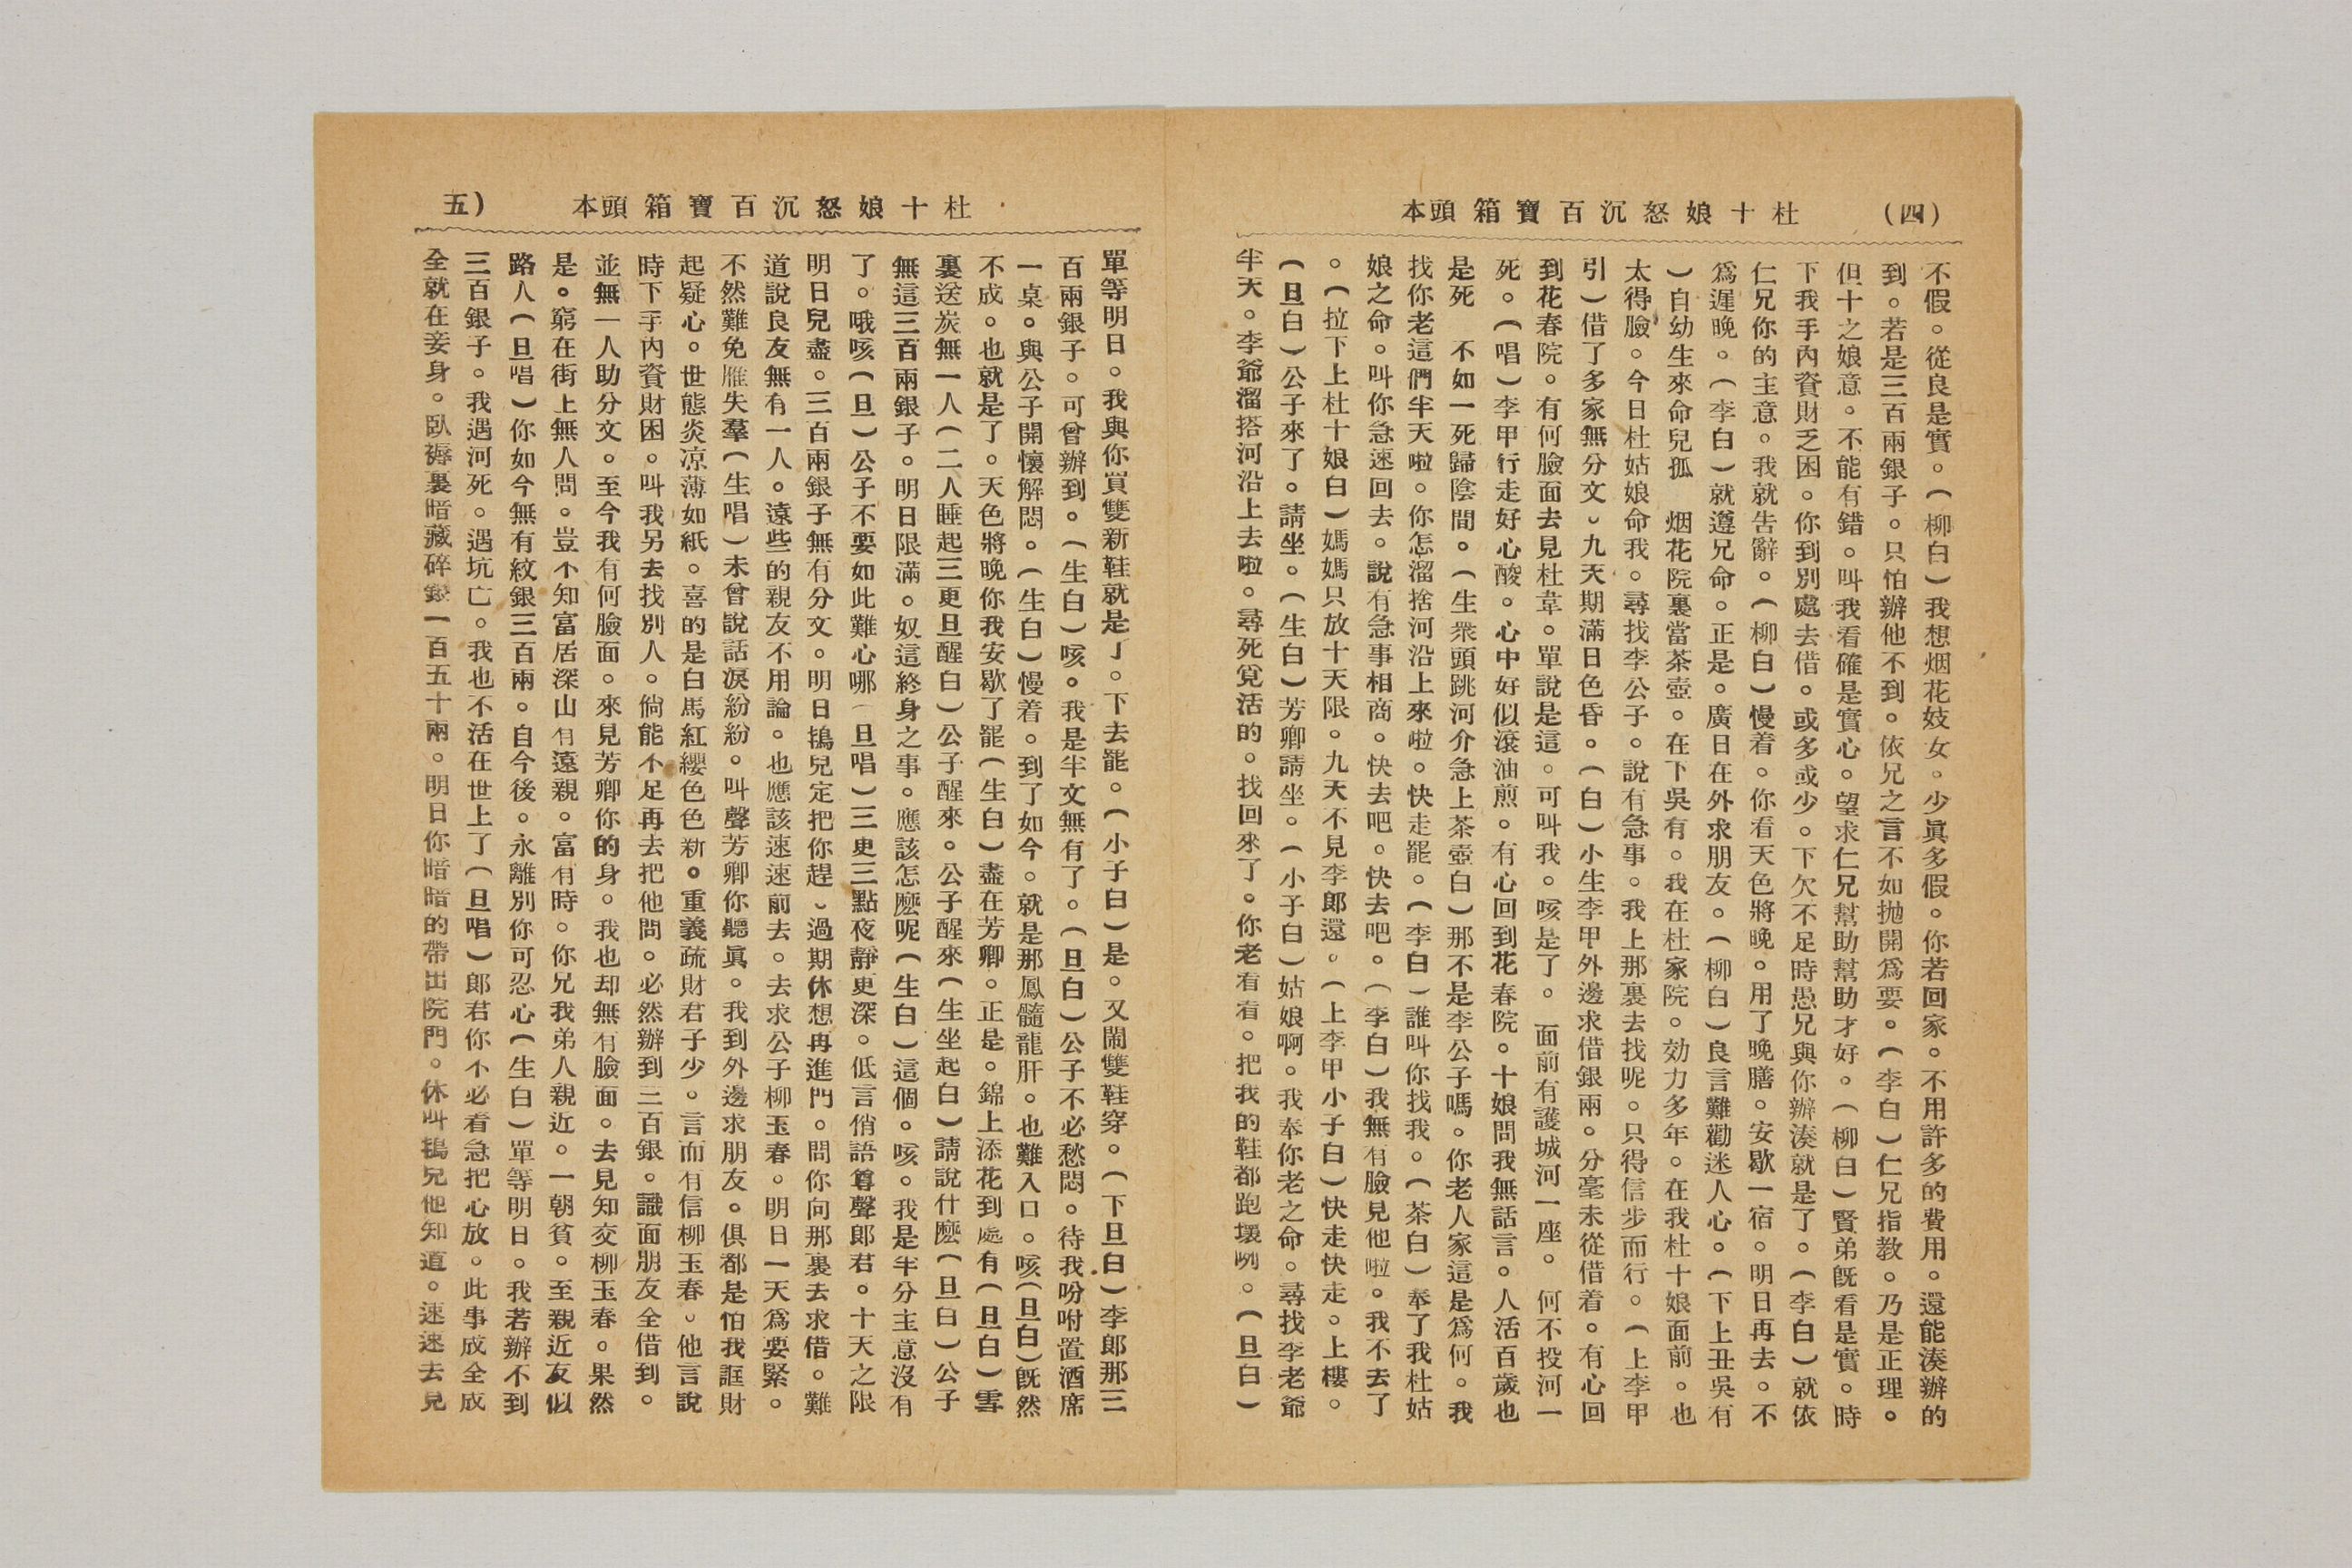 (四)　杜十娘怒沉百寶箱頭本
不假。從良是實。(柳白)我想烟花妓女。少眞多假。你若回家。不用許多的費用。還能湊辦的
到。若是三百兩銀子。只怕辦他不到。依兄之言不如抛開爲要。(李白)仁兄指教。乃是正理。
但十之娘意。不能有錯。叫我看確是實心。望求仁兄幫助幫助才好。(柳白)賢弟既看是實。時
下我手內資財乏困。你到別處去借。或多或少。下欠不足時愚兄與你辦湊就是了。(李白)就依
仁兄你的主意。我就告辭。(柳白)慢着。你看天色將晚。用了晚膳。安歇一宿。明日再去。不
爲遲晚。(李白)就遵兄命。正是。廣日在外求朋友。(柳白)良言難勸迷人心。(下上丑吳有
)自幼生來命兒孤　烟花院裏當茶壺。在下吳有。我在杜家院。効力多年。在我杜十娘面前。也
太得臉。今日杜姑娘命我。尋找李公子。說有急事。我上那裏去找呢。只得信步而行。(上李甲
引)借了多家無分文。九天期滿日色昏。(白)小生李甲外邊求借銀兩。分毫未從借着。有心回
到花春院。有何臉面去見杜韋。單說是這。可叫我。咳是了。面前有護城河一座。何不投河一
死。(唱)李甲行走好心酸。心中好似滾油煎。有心回到花春院。十娘問我無話言。人活百歲也
是死　不如一死歸陰間。(生衆頭跳河介急上茶壺白)那不是李公子嗎。你老人家這是爲何。我
找你老這們半天啦。你怎溜捨河沿上來啦。快走罷。(李白)誰叫你找我。(茶白)奉了我杜姑
娘之命。叫你急速回去。說有急事相商。快去吧。快去吧。(李白)我無有臉見他啦。我不去了
。(拉下上杜十娘白)媽媽只放十天限。九天不見李郎還。(上李甲小子白)快走快走。上樓。
(旦白)公子來了。請坐。(生白)芳卿請坐。(小子白)姑娘啊。我奉你老之命。尋找李老爺
半天。李爺溜搭河沿上去啦。尋死覓活的。找回來了。你老看看。把我的鞋都跑壞咧。(旦白)
杜十娘怒沉百寶箱頭本　五)
單等明日。我與你買雙新鞋就是了。下去罷。(小子白)是。又鬧雙鞋穿。(下旦白)李郎那三
百兩銀子。可曾辦到。(生白)咳。我是半文無有了。(旦白)公子不必愁悶。待我吩咐置酒席
一桌。與公子開懷解悶。(生白)慢着。到了如今。就是那鳳髓龍肝。也難入口。咳(旦白)旣然
不成。也就是了。天色將晚你我安歇了罷(生白)盡在芳卿。正是。錦上添花到處有(旦白)雪
裏送炭無一人(二人睡起三更旦醒白)公子醒來。公子醒來(生坐起白)請說什麽(旦白)公子
無這三百兩銀子。明日限滿。奴這終身之事。應該怎麽呢(生白)這個。咳。我是半分主意沒有
了。哦咳(旦)公子不要如此難心哪(旦唱)三更三點夜靜更深。低言俏語尊聲郎君。十天之限
明日兒盡。三百兩銀子無有分文。明日搗兒定把你趕。過期休想再進門。問你向那裏去求借。難
道說良友無有一人。遠些的親友不用論。也應該速速前去。去求公子柳玉春。明日一天爲要緊。
不然難免雁失羣(生唱)未曾說話淚紛紛。叫聲芳卿你聽眞。我到外邊求朋友。俱都是怕我誆財
起疑心。世態炎凉薄如紙。喜的是白馬紅纓色色新。重義疏財君子少。言而有信柳玉春。他言說
時下手內資財困。叫我另去找別人。倘能不足再去把他問。必然辦到三百銀。識面朋友全借到。
並無一人助分文。至今我有何臉面。來見芳卿你的身。我也却無有臉面。去見知交柳玉春。果然
是。窮在街上無人問。豈不知富居深山有遠親。富有時。你兄我弟人親近。一朝貧。至親近友似
路人(旦唱)你如今無有紋銀三百兩。自今後。永離別你可忍心(生白)單等明日。我若辦不到
三百銀子。我遇河死。遇坑亡。我也不活在世上了(旦唱)郎君你不必着急把心放。此事成全成
全就在妾身。臥褥裏暗藏碎銀一百五十兩。明日你暗暗的帶出院門。休叫搗兒他知道。速速去見